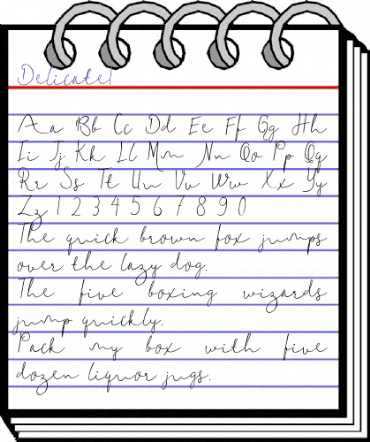 Delicatel
Aa Bb Cc Dd Ee Ff Gg Hh
Ii Jj Kk Ll Mm Nn Oo Pp Qq
Rr Ss Tt Uu Vv Ww Xx Yy
Zz 1 2 3 4 5 6 7 8 9 0
The quick brown fox jumps
over the lazy dog.
The five boxing wizards
jump quickly.
Pack my box with five
dozen liquor jugs.